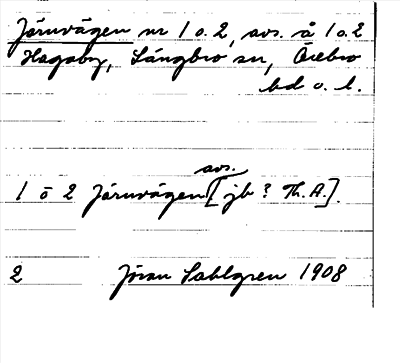 Järnvägen nr 1 o. 2, avs. å 1 o. 2
Hagaby, Långbro sn, Örebro
hd o. l.
avs.
1 o 2 Järnvägen [jb ? Th. A.].
2 Jöran Sahlgren 1908